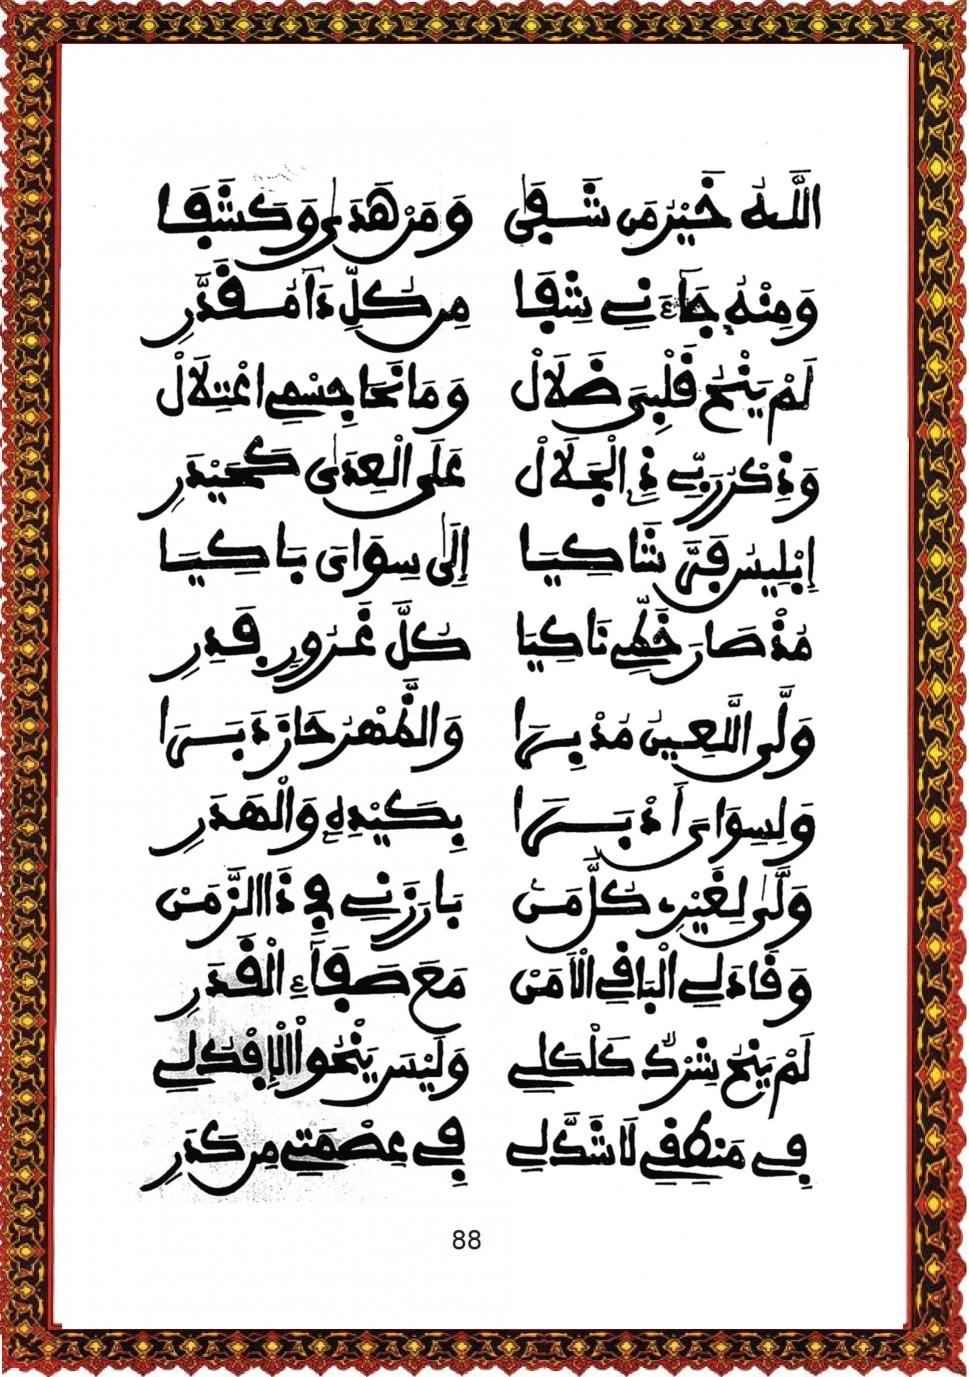 اللَّهُ خَيْرُ مَن شَفَى وَمَنْ هَدَى وَكَشَفَا
وَمِنْهُ جَاءَنِي شِفَا مِن كُلِّ دَآ مُقَذِّرِ
لَمْ يَنْحُ قَلْبِيَ ضَلَالْ وَمَا نَحَا جِسْمِي اعْتِلَالْ
وَذِكْرُ رَبِّي ذِي الْجَلَالْ عَلَى الْعِدَى كَحَيْدَرِ
إِبْلِيسُ فَرَّ شَاكِيَا إِلَى سِوَايَ بَاكِيَا
مُذْ صَارَ خَطِّي نَاكِيَا كُلَّ غَرُورٍ قَذِرِ
وَلَّى اللَّعِينُ مُدْبِرَا وَالْمُهْرُ حَازَ دَبَرَا
وَلِسِوَايَ أَدْبَرَا بِكَيْدِهِ وَالْهَذَرِ
وَلَّى لِغَيْرِي كُلُّ مَنْ بَارَزَنِي فِي ذَا الزَّمَنْ
وَقَادَ لِي الْبَاقِي الْأَمَنْ مَعَ صَفَآءِ الْقَدَرِ
لَمْ يَنْحُ شِرْكٌ كَلْكَلِي وَلَيْسَ يَنْحُو الْإِفْكُ لِي
فِي مَنْطِقِي لَا شَكَّ لِي فِي عِصْمَتِي مِن كَدَرِ
88